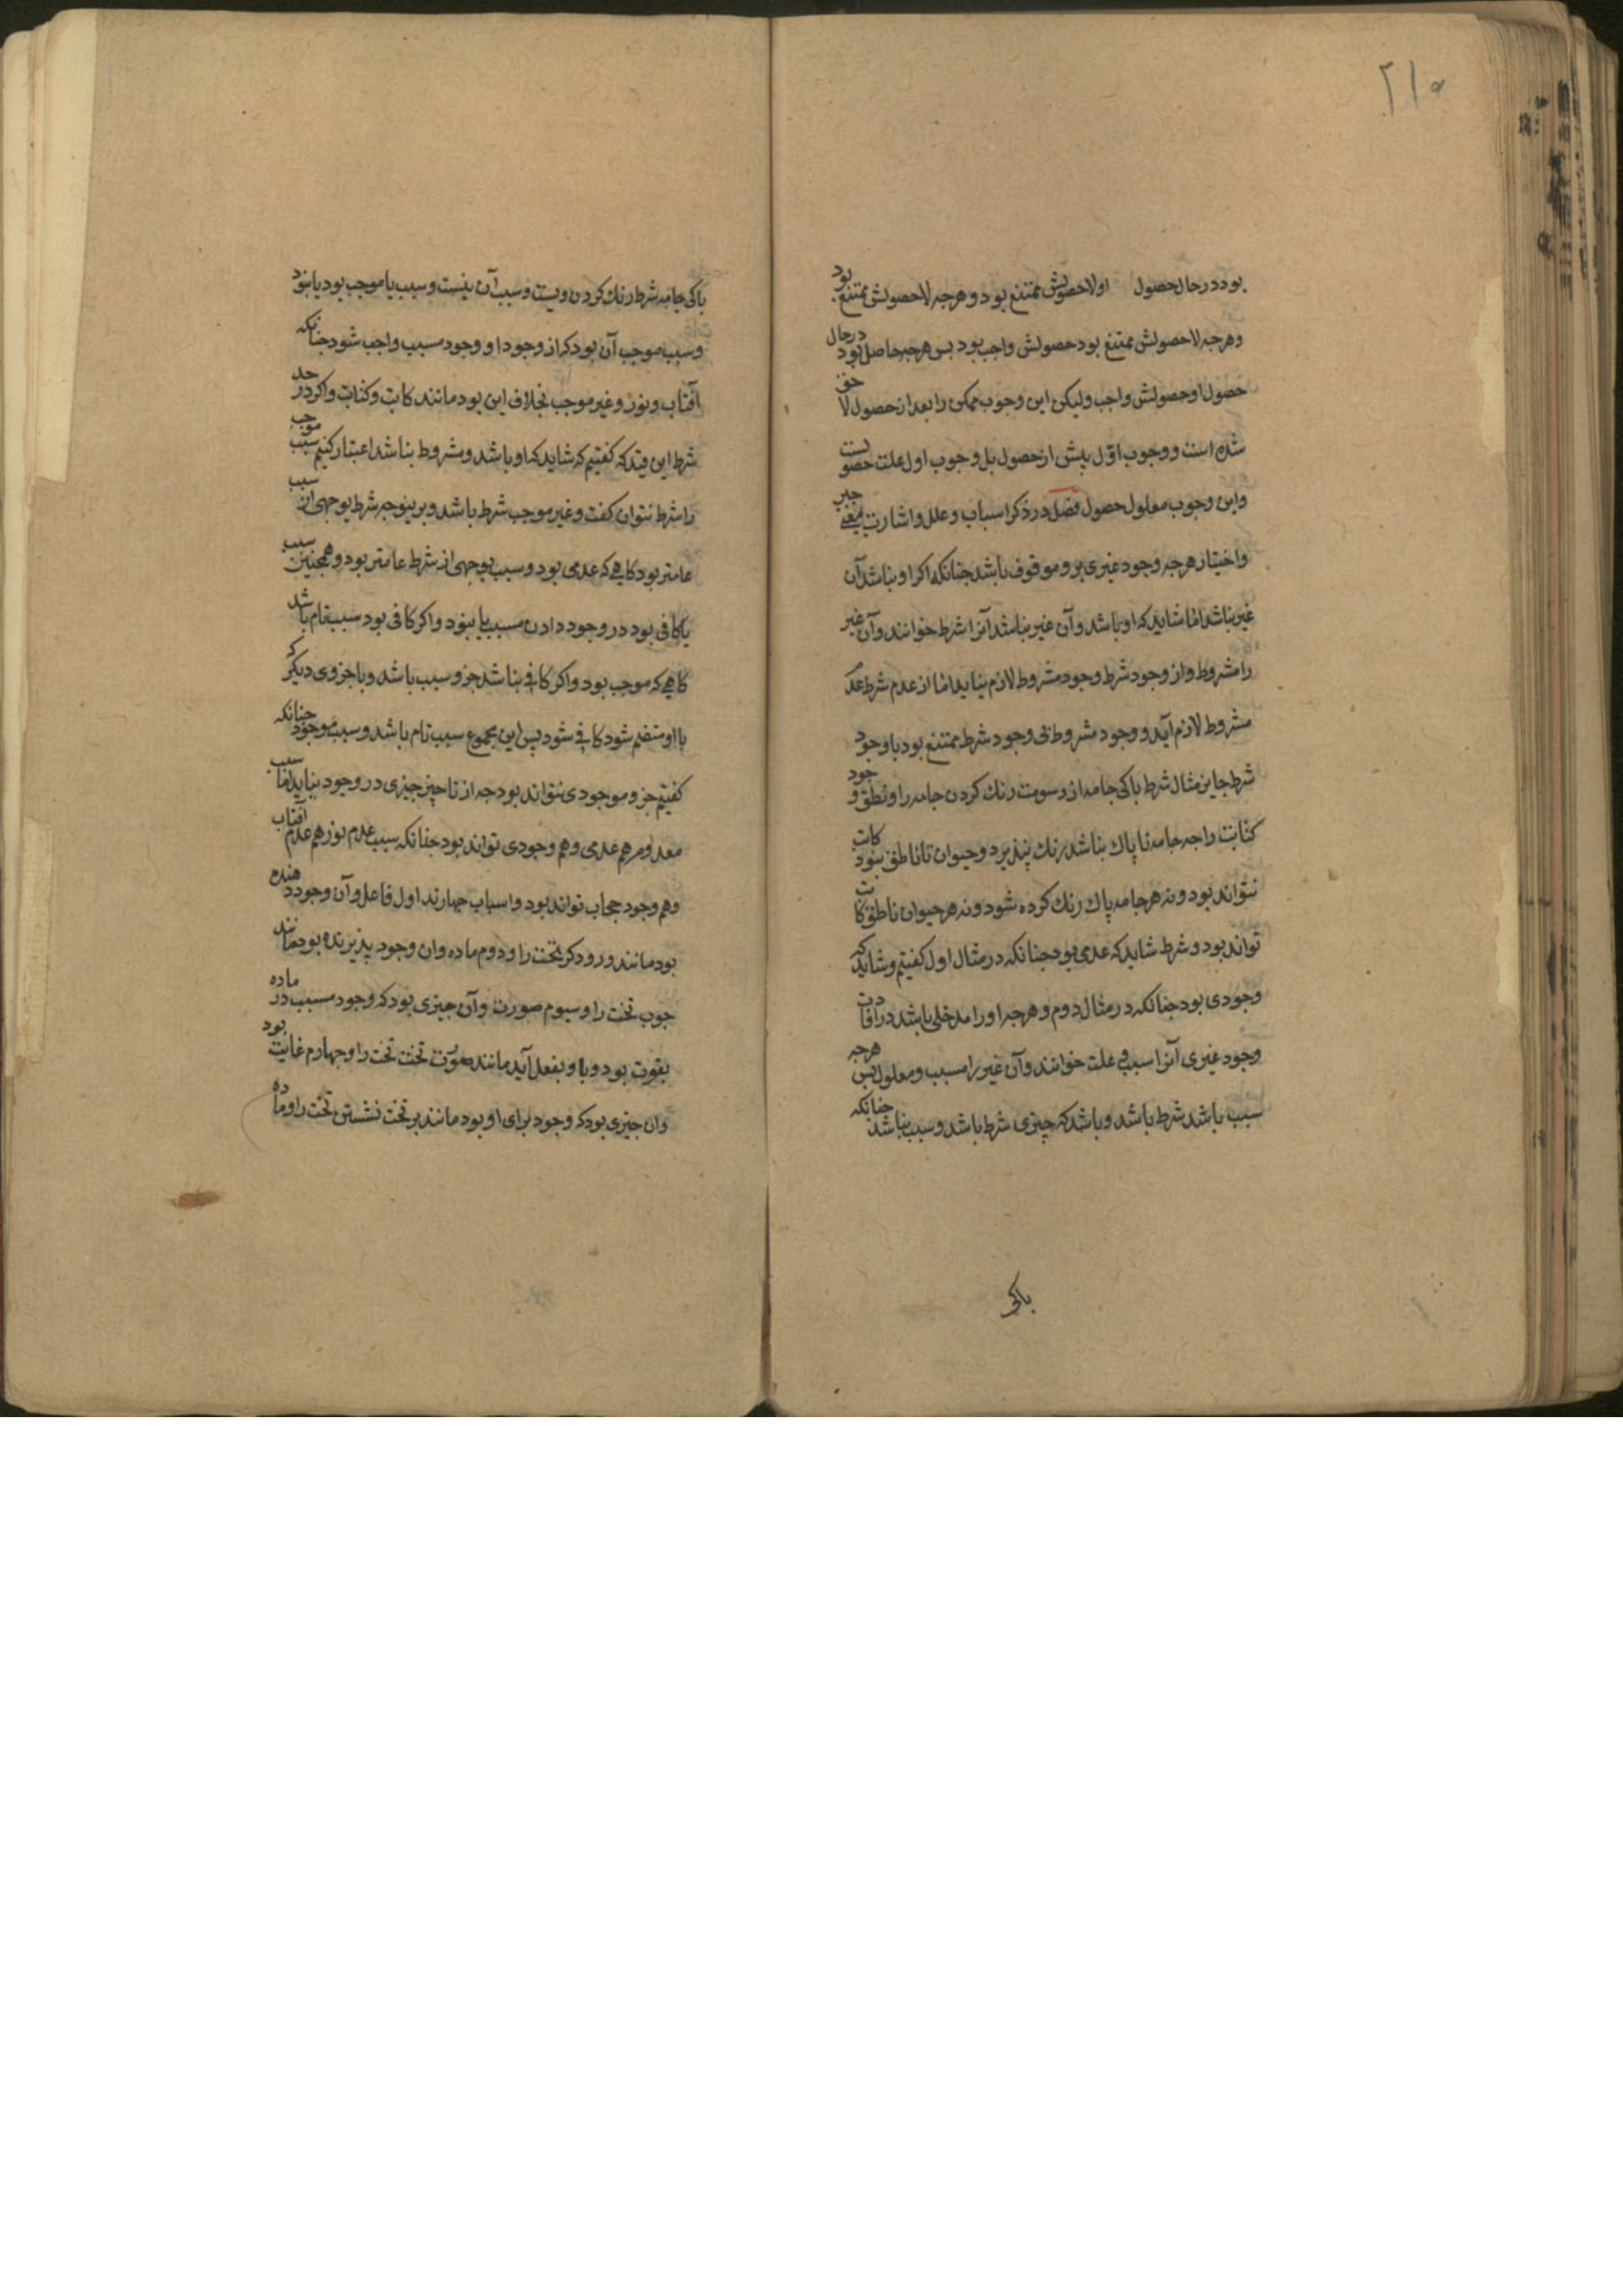 ۲۱۵
بود در حال حصول او لاحصولش ممتنع بود و هرجه لاحصولش ممتنع بود
وهرجه لاحصولش ممتنع بود حصولش واجب بود بس هرجه حاصل بود در حال
حصول او حصولش واجب وليكن اين وجوب ممكن را بعد از حصول لاحق
شده است و وجوب اوّل بيش از حصول بل وجوب اول علت حصولست
واين وجوب معلول حصول فصل در ذكر اسباب و علل و اشارت بمعنى جبر
واختيار هرجه وجود غيرى برو موقوف باشد جنانكه اكر او نباشد آن
غير نباشد امّا شايد كه او باشد و آن غير نباشد آنرا شرط خوانند و آن غير
را مشروط و از وجود شرط وجود مشروط لازم نيايد امّا از عدم شرط عدم
مشروط لازم آيد و وجود مشروط بى وجود شرط ممتنع بود با وجود
شرط جايز مثال شرط باكى جامه از دسومت رنك كردن جامه را و نطق وجود
كتابت را جه جامه تا پاك نباشد رنك نپذيرد و حيوان تا ناطق نبود كاتب
نتواند بود و نه هر جامه پاك رنك كرده شود و نه هر حيوان ناطق كاتب
تواند بود و شرط شايد كه عدمى بود جنانكه در مثال اول كفتيم و شايد كه
وجودى بود جنانكه در مثال دوم و هرجه او را مدخلى باشد در افادت
وجود غيرى آنرا سبب و علت خوانند و آن غير را مسبب و معلول بس هرجه
سبب باشد شرط باشد و باشد كه چيزى شرط باشد و سبب نباشد جنانكه
باكى
باكى جامه شرط رنك كردن ويست و سبب آن نيست و سبب يا موجب بود يا نبود
و سبب موجب آن بود كه از وجود او وجود مسبب واجب شود جنانكه
آفتاب و نور و غير موجب بخلاف اين بود مانند كاتب و كتابت و اكر در حد
شرط اين قيد كه كفتيم كه شايد كه او باشد و مشروط نباشد اعتبار كنيم سبب موجب
را شرط نتوان كفت و غير موجب شرط باشد و برينوجه شرط بوجهى از سبب
عامتر بود كاهى كه عدمى بود و سبب بوجهى از شرط عامتر بود و همجنين سبب
يا كافى بود در وجود دادن مسبب يا نبود و اكر كافى بود سبب تام باشد
كاهى كه موجب بود و اكر كافى نباشد جزو سبب باشد و با جزوى ديكر كه
با او منضم شود كافى شود پس اين مجموع سبب تام باشد و سبب موجود جنانكه
كفتيم جزو موجودى نتواند بود جه از ناچيز جيزى در وجود نيايد امّا سبب
معدوم هم عدمى و هم وجودى تواند بود جنانكه سبب عدم نور هم عدم آفتاب
و هم وجود حجاب تواند بود و اسباب جهارند اول فاعل و آن وجود دهنده
بود مانند درودكر تخت را و دوم ماده و ان وجود پذيرنده بود مانند
جوب تخت را و سيوم صورت و آن جيزى بود كه وجود مسبب در ماده
بقوت بود و با و بفعل آيد مانند صورت تخت تخت را و جهارم غايت بود
و ان جيزى بود كه وجود براى او بود مانند بر تخت نشستن تخت را و ماده